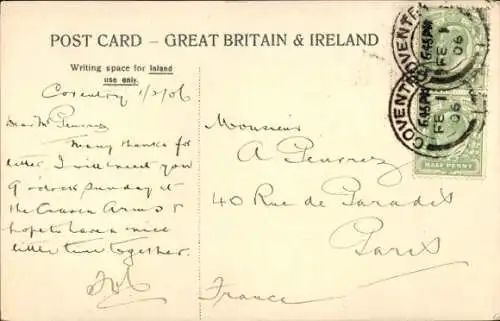 POST CARD – GREAT BRITAIN & IRELAND
Writing space for Inland
use only.
Coventry 1/2/06
Dear Mr
Many thanks for
letter I will meet you
9 o'clock Sunday at
the Craven Arms &
hope to have a nice
little time together.
Monsieur
A
40 Rue de Paradis
Paris
France
COVENTRY
6.45PM
FE 1
06
COVENTRY
6.45PM
FE 1
06
HALF PENNY